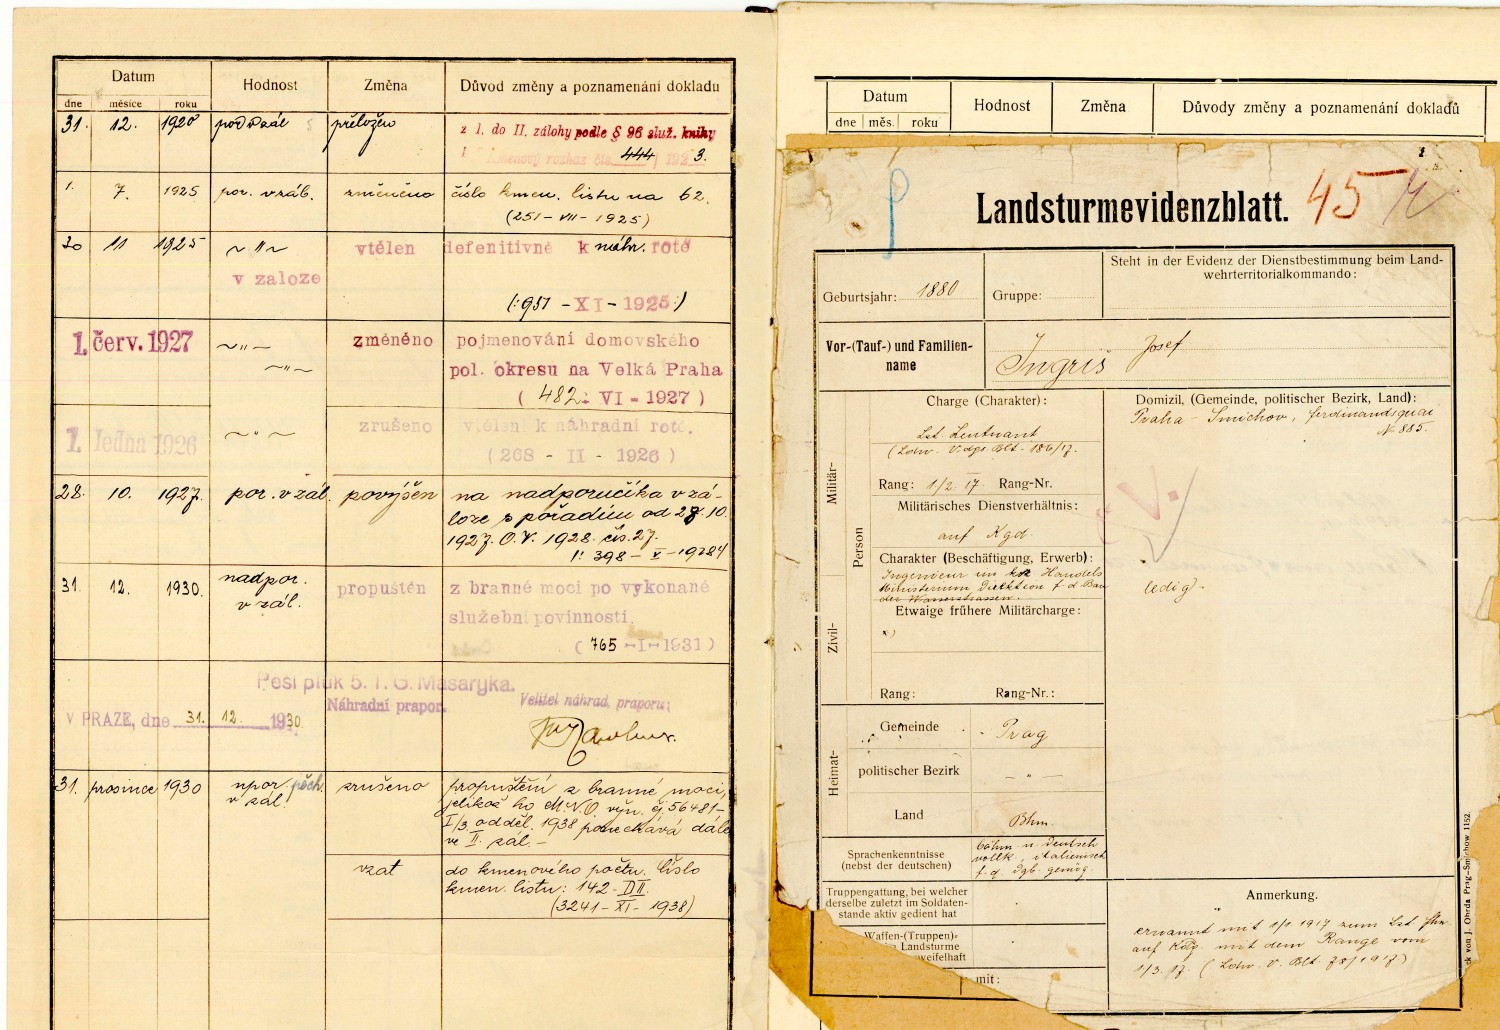 Datum
Hodnost
Změna
Důvod změny a poznamenání dokladu
dne
měsíce
roku
31. 12. 1920
přeložen
z I. do II. zálohy podle § 96 služ. knihy
Kmenový rozkaz čís. 444 / 1923.
1. 7. 1925 por. v záb. změněno číslo kmen. listu na 62.
(251 - VII - 1925)
30 11 1925 ~ " ~ vtělen defenitivně k náhr. rotě
v zaloze
(: 951 - XI - 1925 :)
1. červ. 1927 ~ " ~ změněno pojmenování domovského
~ " ~ pol. okresu na Velká Praha
( 482 - VI - 1927 )
1. ledna 1926 ~ " ~ zrušeno vtělení k náhradní rotě.
(268 - II - 1926 )
28. 10. 1927. por. v zál. povýšen na nadporučíka v zá-
loze s pořadím od 28. 10.
1927. O.V. 1928. čís. 27.
398 - V - 1928
31. 12. 1930. nadpor. propuštěn z branné moci po vykonané
v zál. služební povinnosti.
( 765 - I - 1931 )
Pěší pluk 5. T. G. Masaryka.
Náhradní prapor.
Velitel náhrad. praporu:
V PRAZE, dne 31. 12. 1930.
31. prosince 1930 npor. pěch. zrušeno propuštění z branné moci,
v zál. jelikož ho M.N.O. výn. čj 56481-
I/3. odděl. 1938 ponechává dále
ve II. zál. -
vzat do kmenového počtu. Číslo
kmen. listu: 142-DII.
(3241 - XI - 1938)
Datum
Hodnost
Změna
Důvody změny a poznamenání dokladů
dne
měs.
roku
Landsturmevidenzblatt.
45
Geburtsjahr: 1880
Gruppe:
Steht in der Evidenz der Dienstbestimmung beim Land-
wehrterritorialkommando:
Vor-(Tauf-) und Familien-
name
Ingriš Josef
Militär-
Zivil-
Person
Charge (Charakter):
Lst. Leutnant
(Ldw. V. dgs Blt. 186/17.
Rang: 1/2. 17. Rang-Nr.
Militärisches Dienstverhältnis:
auf Kgd.
Charakter (Beschäftigung, Erwerb):
Ingenieur im kk Handels
Ministerium, Direktion f. d. Bau
der Wasserstrassen
Etwaige frühere Militärcharge:
Rang:
Rang-Nr.:
Domizil, (Gemeinde, politischer Bezirk, Land):
Praha - Smichov, Ferdinandsquai
№ 885.
ledig.
Heimat-
Gemeinde Prag
politischer Bezirk - " -
Land Bhm.
Sprachenkenntnisse
(nebst der deutschen)
böhm. u. deutsch
vollk., italienisch
f. d. Dgb. genüg.
Truppengattung, bei welcher
derselbe zuletzt im Soldaten-
stande aktiv gedient hat
Waffen-(Truppen)=
Landsturme
zweifelhaft
mit:
Anmerkung.
ernannt mit 1/1 1917 zum Lst. Ltn.
auf Kdg. mit dem Range vom
1/3. 17. (Ldw. V. Blt. 78/1917)
Druck von J. Ohrda Prag-Smichow 1152.